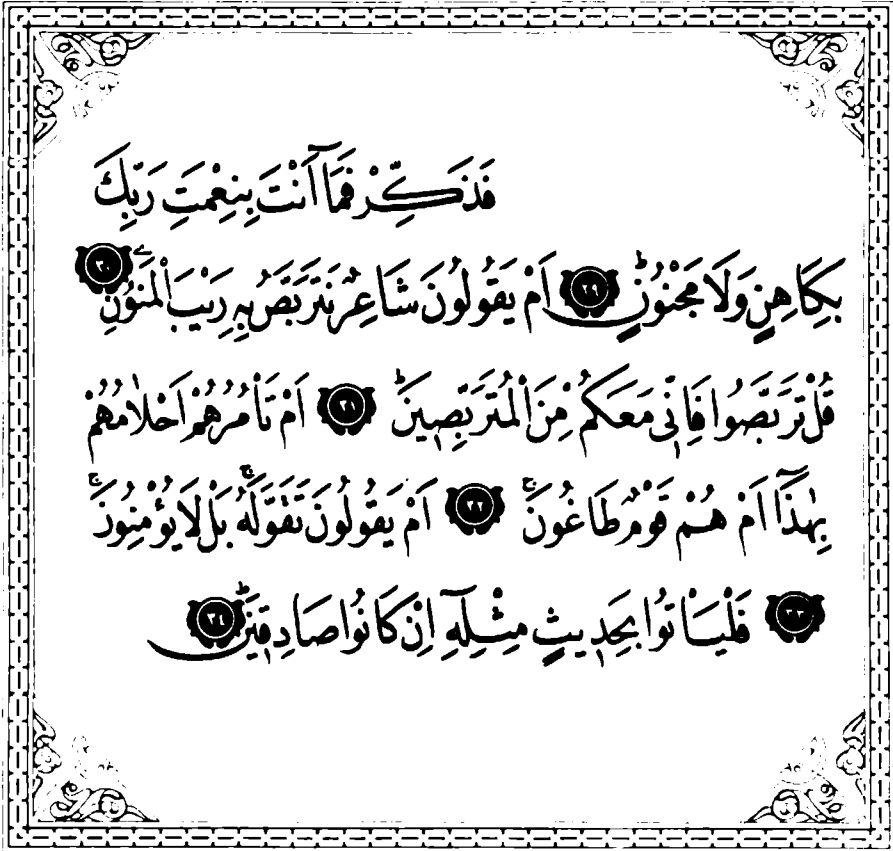 فَذَكِّرْ فَمَٓا اَنْتَ بِنِعْمَتِ رَبِّكَ
بِكَاهِنٍ وَلَا مَجْنُونٍۜ ﴿٢٩﴾ اَمْ يَقُولُونَ شَاعِرٌ نَتَرَبَّصُ بِه۪ رَيْبَ الْمَنُونِ ﴿٣٠﴾
قُلْ تَرَبَّصُوا فَاِنّ۪ي مَعَكُمْ مِنَ الْمُتَرَبِّص۪ينَۜ ﴿٣١﴾ اَمْ تَأْمُرُهُمْ اَحْلَامُهُمْ
بِهٰذَٓا اَمْ هُمْ قَوْمٌ طَاغُونَۚ ﴿٣٢﴾ اَمْ يَقُولُونَ تَقَوَّلَهُۚ بَلْ لَا يُؤْمِنُونَۚ
﴿٣٣﴾ فَلْيَأْتُوا بِحَد۪يثٍ مِثْلِه۪ٓ اِنْ كَانُوا صَادِق۪ينَۜ ﴿٣٤﴾